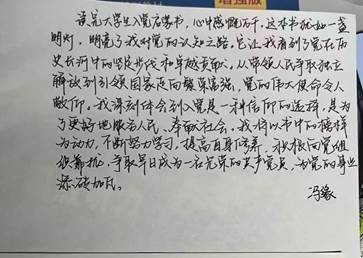 增强版
读完大学生入党启蒙书，心中感慨万千，这本书犹如一盏
明灯，明亮了我对党的认知之路。它让我看到了党在历
史长河中的坚毅步伐和卓越贡献。从带领人民争取独立
解放到引领国家走向繁荣富强，党的伟大使命令人
敬仰。我深刻体会到入党是一种信仰的选择，是为
了更好地服务人民、奉献社会。我将以书中的榜样
为动力，不断努力学习，提高自身修养，积极向党组
织靠拢，争取早日成为一名光荣的共产党员，为党的事业
添砖加瓦。
冯缘